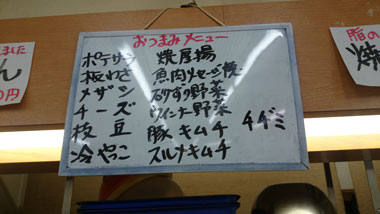 おつまみメニュー
ポテサラ 焼厚揚
板わさ 魚肉ソーセージ焼
メザシ 砂ずり野菜
チーズ ウインナー野菜
枝豆 豚キムチ チヂミ
冷やこ スルメキムチ
ました
ん
0円
脂の
焼